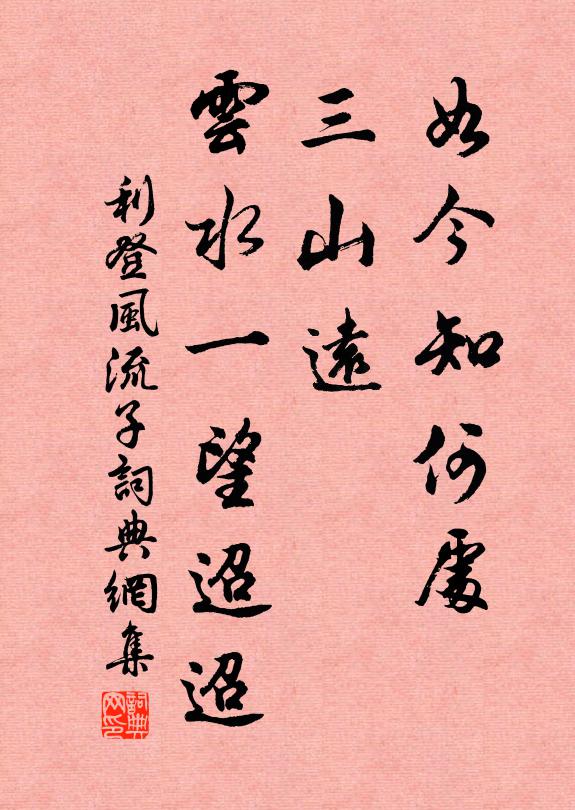 如今知何處
三山遠
雲水一望迢迢
利登風流子詞典網集
詞典网印